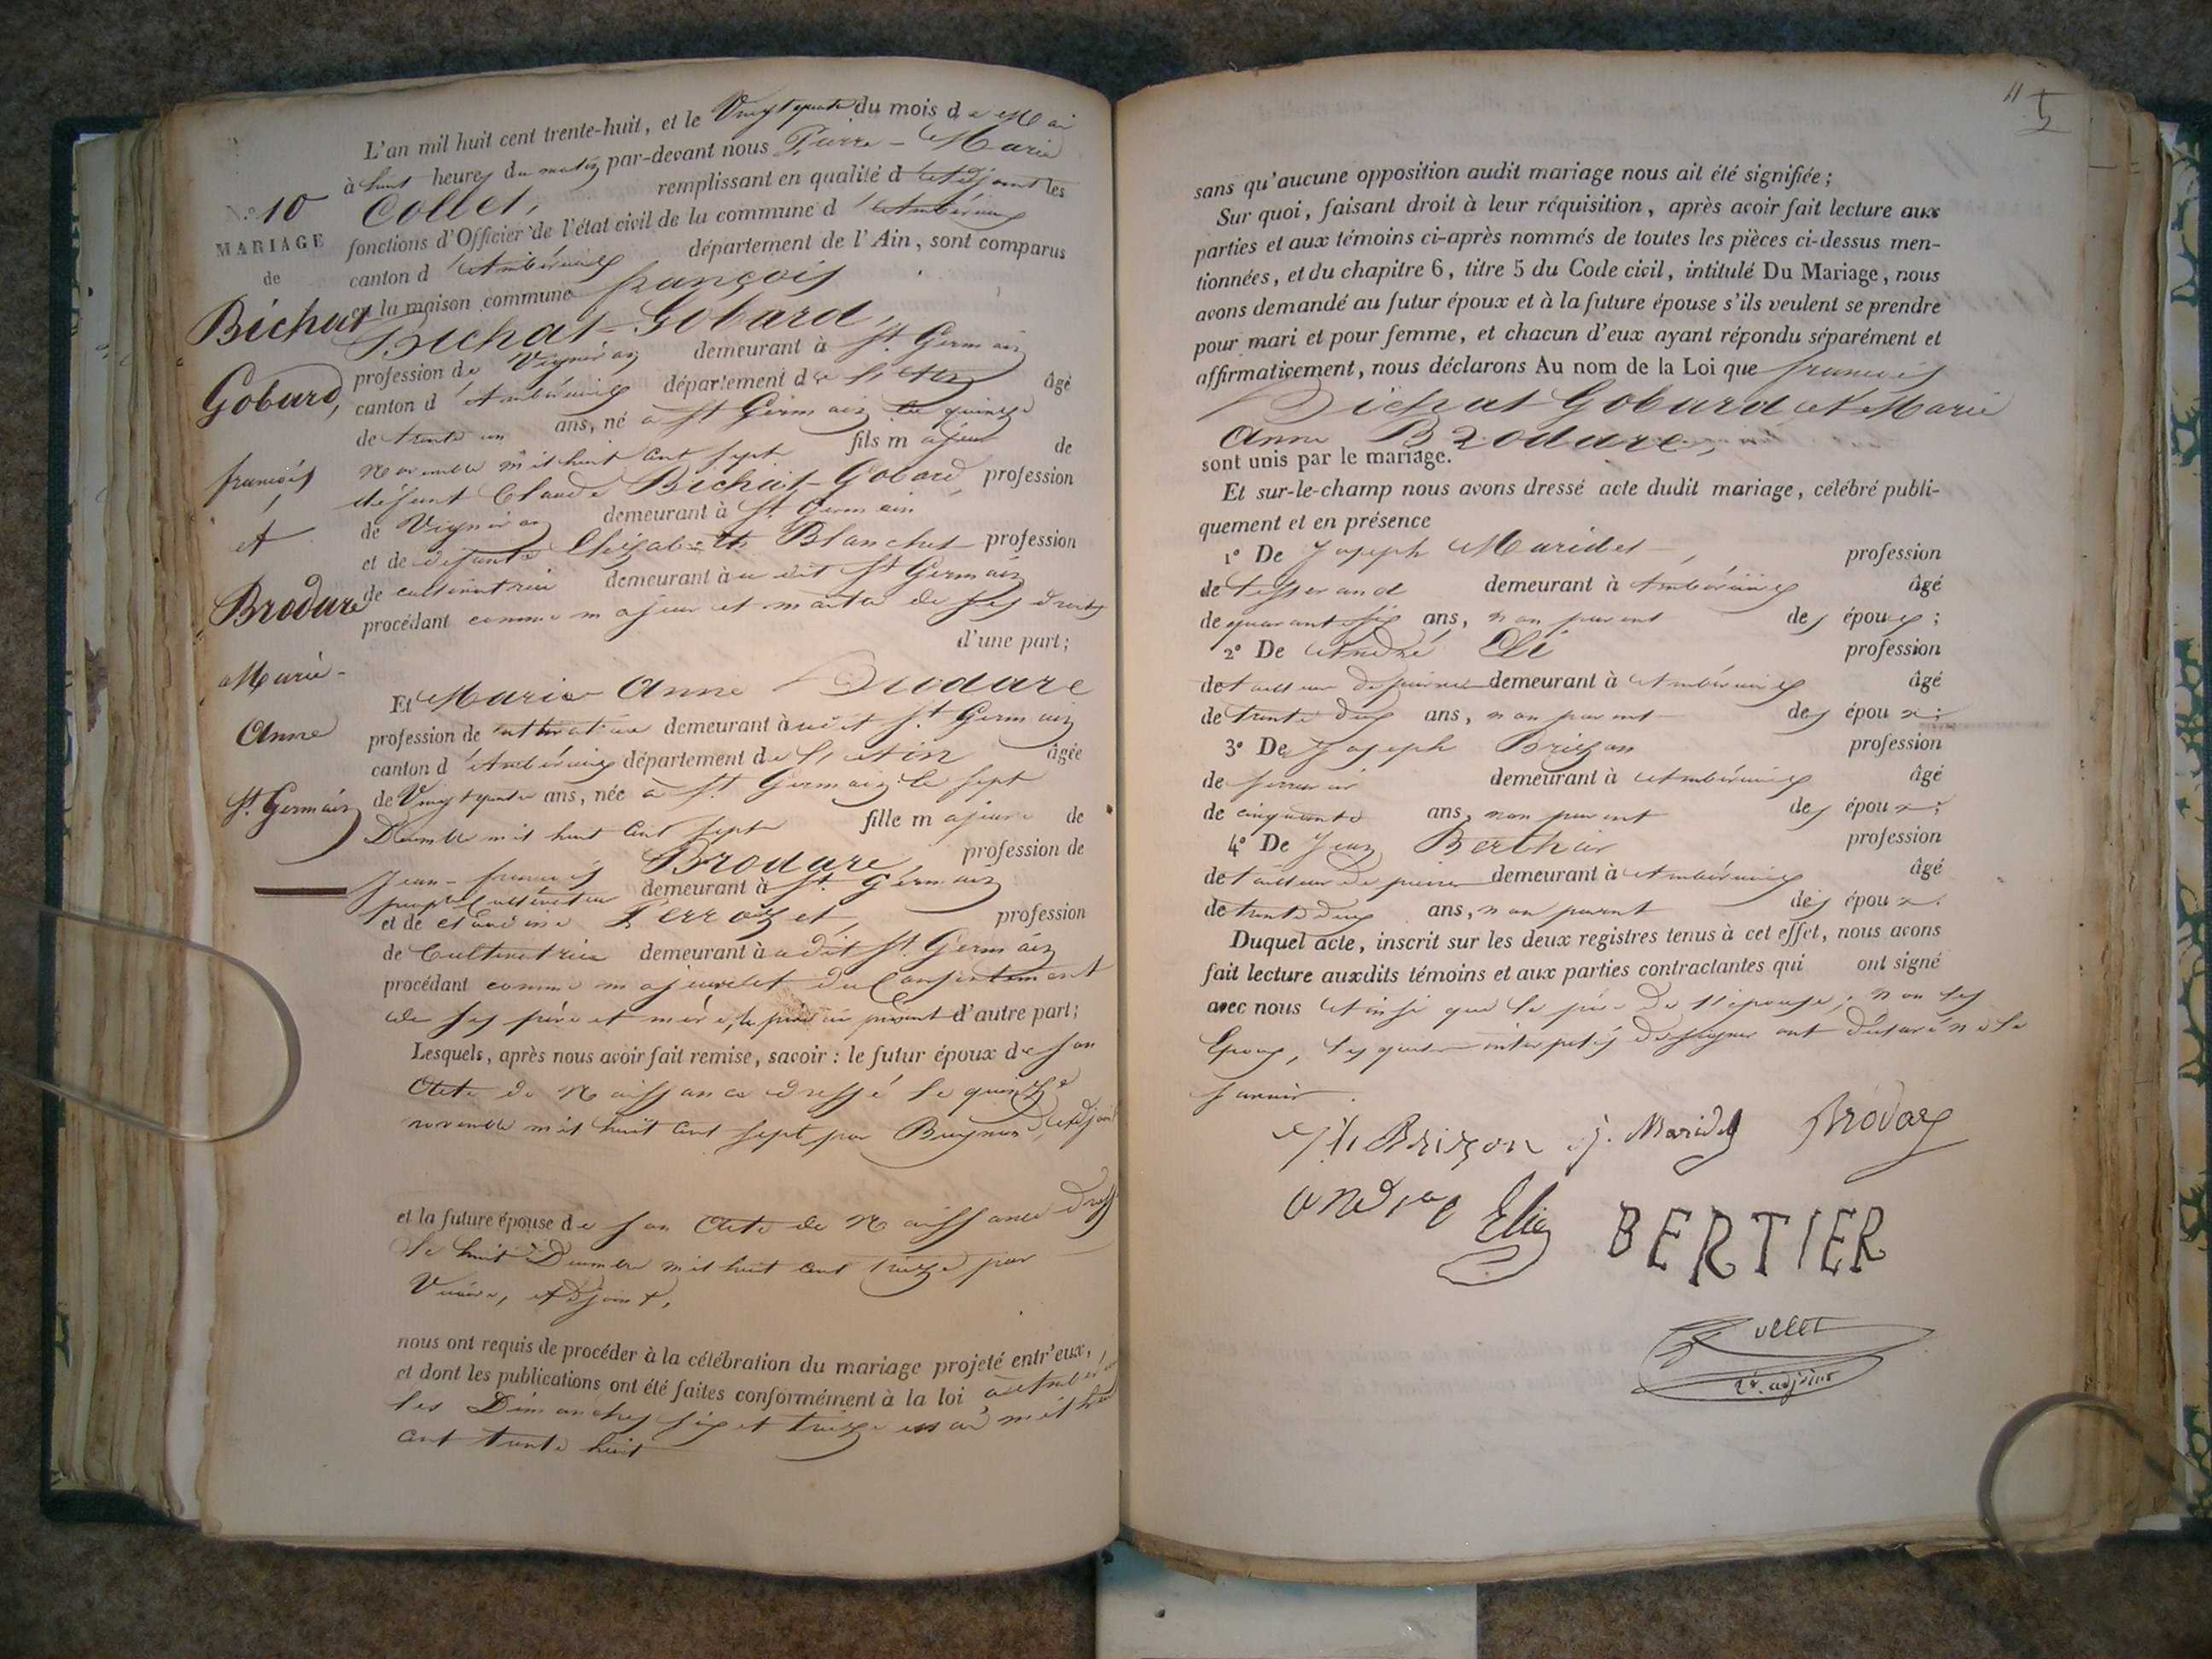 N.º 10
MARIAGE
de
Bichat
Gobard,
françois
et
Brodare
Marie-
Anne
St. Germain
L'an mil huit cent trente-huit, et le Vingt quatre du mois de Mai
à huit heures du matin par-devant nous Pierre-Marie
Collet, remplissant en qualité d'Adjoint les
fonctions d'Officier de l'état civil de la commune d'Ambérieux
canton d'Ambérieux département de l'Ain, sont comparus
en la maison commune françois
Bichat-Gobard,
profession de Vigneron demeurant à St. Germain
canton d'Ambérieux département de l'Ain âgé
de trente un ans, né à St Germain le quinze
Novembre mil huit cent sept fils majeur de
défunt Claude Bichat-Gobard, profession
de Vigneron demeurant à St. Germain
et de défunte Elizabeth Blanchet profession
de cultivatrice demeurant audit St Germain
procédant comme majeur et maitre de ses droits
d'une part;
Et Marie Anne Brodare
profession de cultivatrice demeurant audit St. Germain
canton d'Ambérieux département de l'Ain âgée
de Vingt quatre ans, née à St. Germain le sept
Décembre mil huit cent fille majeure de
Jean-françois Brodare, profession de
cultivateur demeurant à St. Germain
et de Claudine Perrozet, profession
de Cultivatrice demeurant audit St. Germain
procédant comme majeure et du Consentement
de ses père et mère, le père ici présent d'autre part;
Lesquels, après nous avoir fait remise, savoir: le futur époux de son
Acte de Naissance dressé le quinze
novembre mil huit cent sept par Adjoint
et la future épouse de son Acte de Naissance dressé
le huit Décembre mil huit cent treize par
Adjoint,
nous ont requis de procéder à la célébration du mariage projeté entr'eux,
et dont les publications ont été faites conformément à la loi
les Dimanches six et treize mai mil huit
cent trente huit
11
5
sans qu'aucune opposition audit mariage nous ait été signifiée;
Sur quoi, faisant droit à leur réquisition, après avoir fait lecture aux
parties et aux témoins ci-après nommés de toutes les pièces ci-dessus men-
tionnées, et du chapitre 6, titre 5 du Code civil, intitulé Du Mariage, nous
avons demandé au futur époux et à la future épouse s'ils veulent se prendre
pour mari et pour femme, et chacun d'eux ayant répondu séparément et
affirmativement, nous déclarons Au nom de la Loi que françois
Bichat Gobard et Marie
Anne Brodare,
sont unis par le mariage.
Et sur-le-champ nous avons dressé acte dudit mariage, célébré publi-
quement et en présence
1º De Joseph Maridet, profession
de tisserand demeurant à Ambérieux âgé
de quarante six ans, non parent des époux;
2º De André Elie profession
de tailleur de pierres demeurant à Ambérieux âgé
de trente deux ans, non parent des époux;
3º De Joseph Brizon profession
de serrurier demeurant à Ambérieux âgé
de cinquante ans, non parent des époux;
4º De Jean Berthier profession
de tailleur de pierres demeurant à Ambérieux âgé
de trente deux ans, non parent des époux.
Duquel acte, inscrit sur les deux registres tenus à cet effet, nous avons
fait lecture auxdits témoins et aux parties contractantes qui ont signé
avec nous Ainsi que le père de l'épouse; non les
Epoux, les quels interpelés de signer ont déclaré ne le
savoir.
Brizon j. Maridet Brodare
andré Elie BERTIER
Collet
adjoint